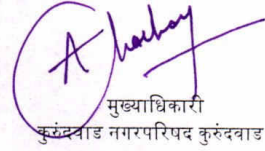 मुख्याधिकारी
कुरुंदवाड नगरपरिषद कुरुंदवाड